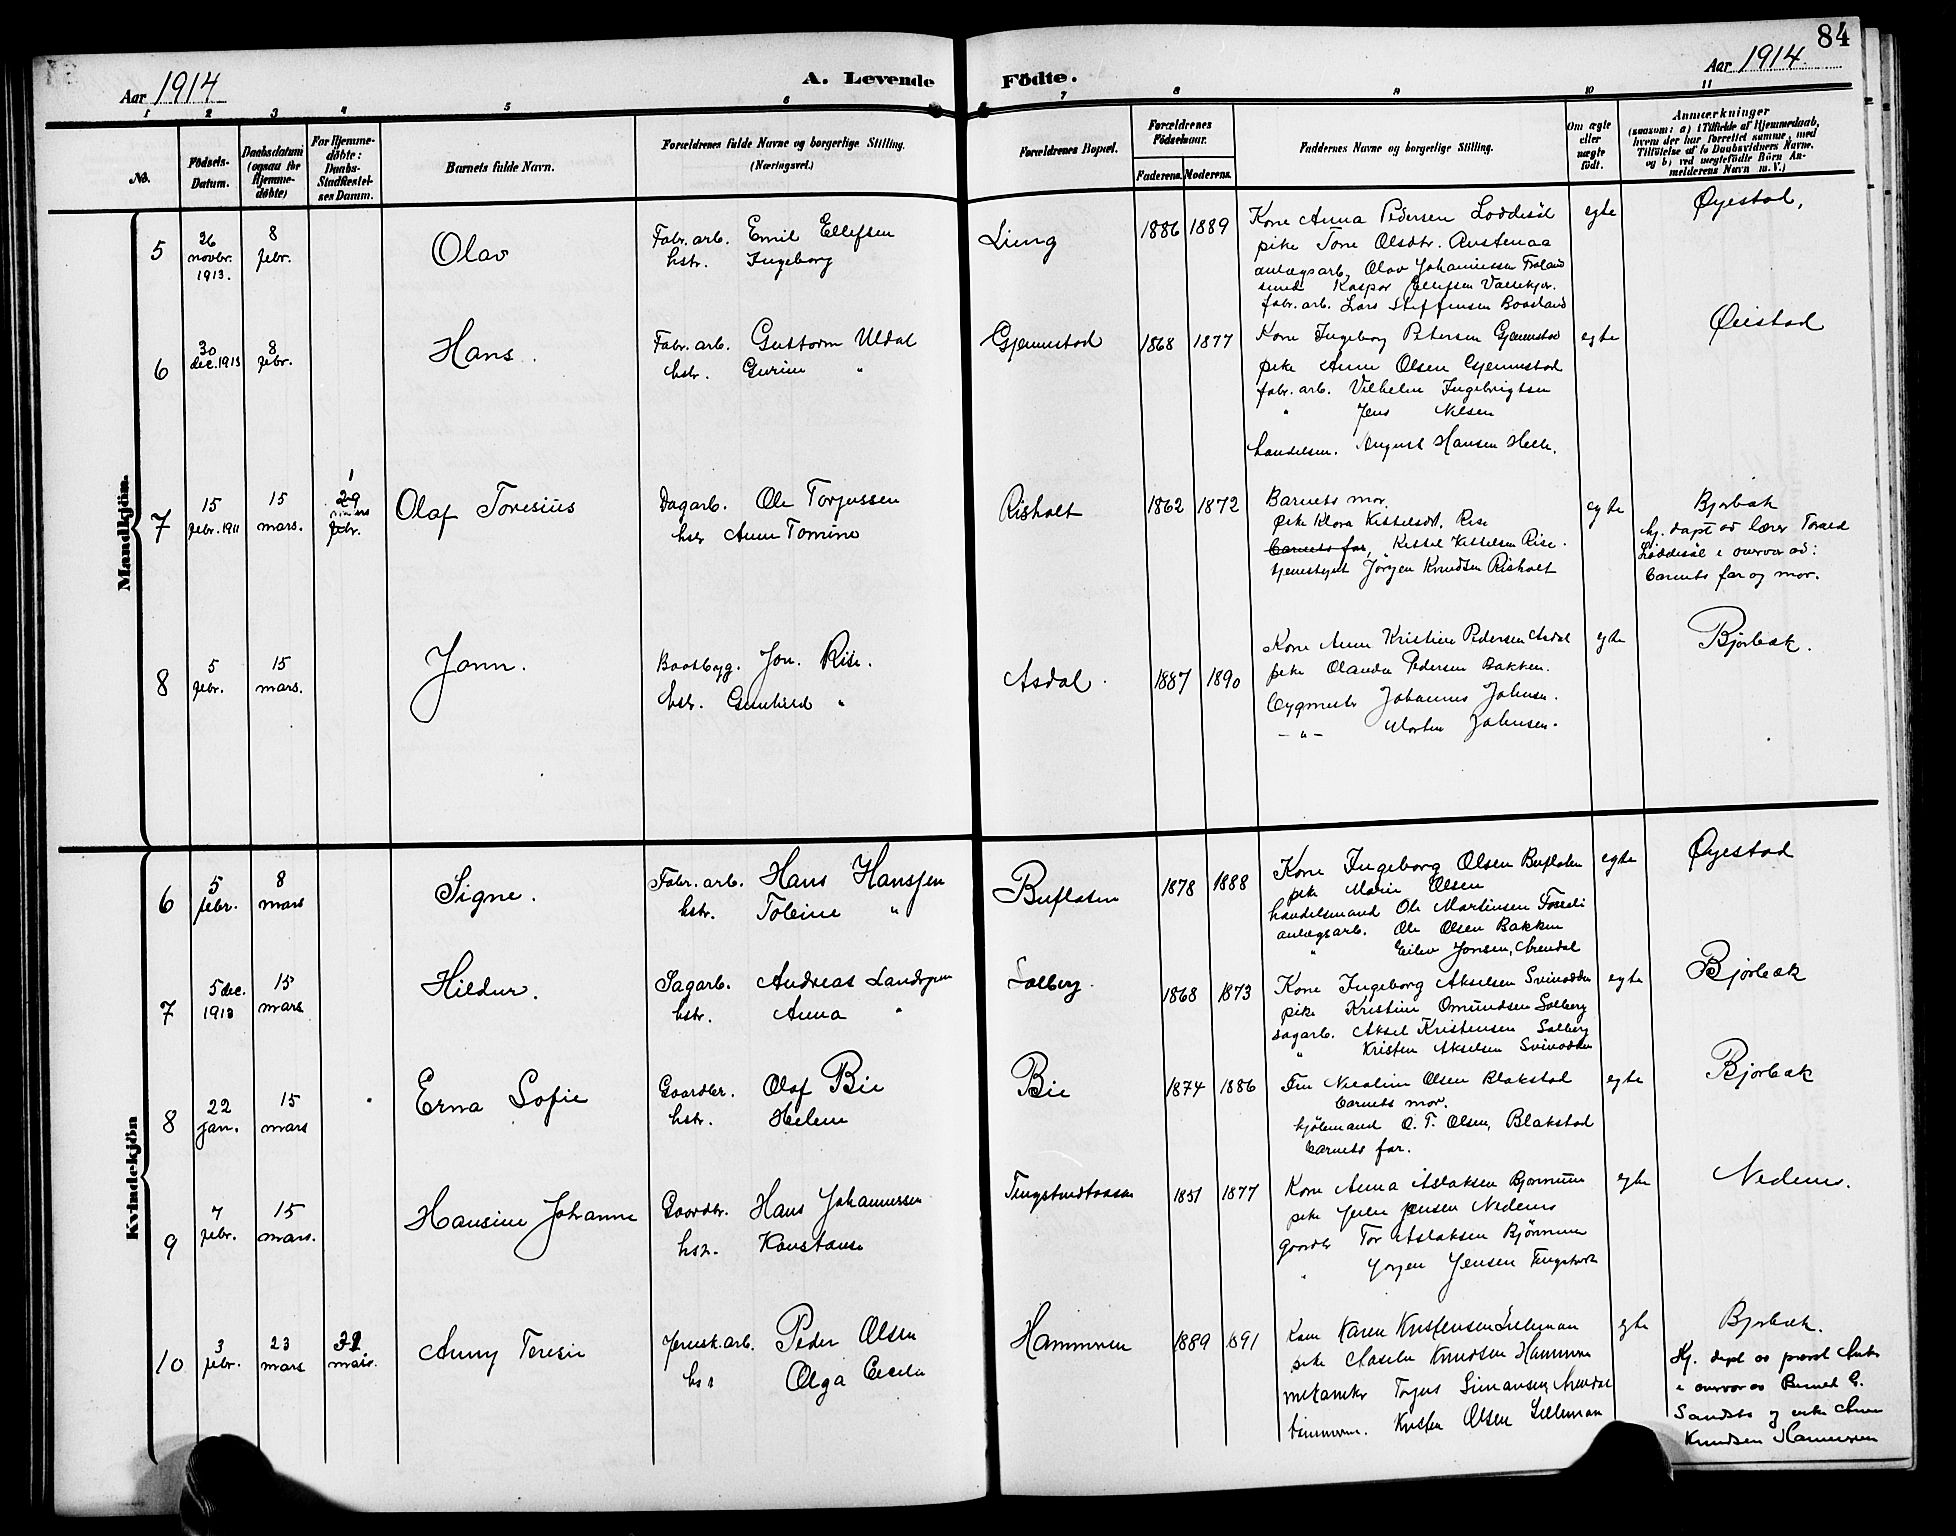 84
Aar 1914
A. Levende Födte.
Aar 1914
1 2 3 4 5 6 7 8 9 10 11
No.
Födsels-
Datum.
Daabsdatum
(ogsaa for
Hjemme-
döbte)
For Hjemme-
döbte:
Daabs-
Stadfæstel-
ses Datum.
Barnets fulde Navn.
Forældrenes fulde Navne og borgerlige Stilling.
(Næringsvei.)
Forældrenes Bopæl.
Forældrenes
Födselsaar.
Faderens. Moderens.
Faddernes Navne og borgerlige Stilling.
Om ægte
eller
uægte
födt.
Anmærkninger
(saasom: a) i Tilfælde af Hjemmedaab,
hvem der har forrettet samme, med
Tilföielse af to Daabsvidners Navne.
og b) ved uægtefödte Börn An-
melderens Navn m. V.)
Mandkjön.
5
26
novbr.
1913.
8
febr.
Olav
Fabr. arb. Emil Ellefsen
hstr. Ingeborg
Liung
1886 1889
Kone Anna Pedersen Loddesöl
pike Tone Olsdtr. Austenaa
anlægsarb. Olav Johannessen Froland
smed Kasper Ellefsen Vassekjær.
fabr. arb. Lars Steffensen Booslad
egte
Øyestad,
6
30
dec. 1913
8
febr.
Hans.
Fabr. arb. Guttorm Uldal
hstr. Gurine "
Gjennestad
1868 1877
Kone Ingeborg Petersen Gjennestad
pike Anne Olsen Gjennestad
fabr. arb. Vilhelm Ingebrigtsen
" Jens Nilsen
handelsm. August Hansen Helle.
egte
Øiestad
7
15
febr. 1911
15
mars.
1
29
febr.
Olaf Toresius
Dagarb. Ole Torjussen
hstr Anne Tomine
Risholt
1862 1872
Barnets mor
pike Klara Kittelsdt. Rise
barnets far, Kittel Kittelsen Rise.
tjenestegut Jörgen Knudsen Risholt
egte
Bjorbæk
hj. döpt av lærer Tored
Löddesöl i overvær av:
barnets far og mor.
8
5
febr.
15
mars.
Jonn.
Baatbyg. Jon. Rise.
hstr. Gunhild "
Asdal.
1887 1890
Kone Anne Kristine Pedersen Asdal
pike Olanda Pedersen Bakken.
bygmestr Johannes Johnsen.
- " - Morten Johnsen.
egte
Bjørbæk.
Kvindekjön
6
5
febr.
8
mars
Signe.
Fabr. arb. Hans Hansen
hstr. Toline "
Buflaten
1878 1888
Kone Ingeborg Olsen Buflaten
pike Marie Olsen
handelsmand Ole Martinsen
anlægsarb. Ole Olsen Bakken
" Eilev Jonsen, Arendal
egte
Øyestad
7
5 dec.
1913
15
mars
Hildur.
Sagarb. Andreas
hstr. Anna "
Solberg.
1868 1873
Kone Ingeborg Akselsen Svinodden
pike Kristine Omundsen Solberg
dagarb. Aksel Kristensen Solberg
" Kristen Akselsen Svinodden
egte
Bjørbæk
8
22
jan.
15
mars
Erna Sofie
Gaardbr. Olaf Bie
hstr. Helene
Bie
1874 1886
Fru Nicoline Olsen Blakstad
barnets mor.
kjöbmand O. T. Olsen, Blakstad
barnets far.
egte
Bjorbæk
9
7
febr.
15
mars.
Hansine Johanne
Gaardbr. Hans Johannessen
hstr. Konstanse
Tingstveitaasen
1851 1877
Kone Anna Aslaksen Bjønnum
pike Jensen Nedenes
gaardbr Tor Aslaksen Bjørnum
" Jorgen Jensen Tingstveit
egte
Nedenes.
10
3
febr.
23
mars
mars.
Anny Teresie
Jernsk. arb. Peder Olsen
hstr Olga Cecilie
Hammeren
1889 1891
Kone Karen Kristensen Lilleman
pike Aaselie Knudsen Hammeren
mekaniker Torjus Simonsen, Arendal
tømmerm. Kristen Olsen Lilleman
egte
Bjorbæk.
Hj. døpt av prost
i overvær av Bernt G.
Sandsto og enke Anne
Knudsen Hammeren